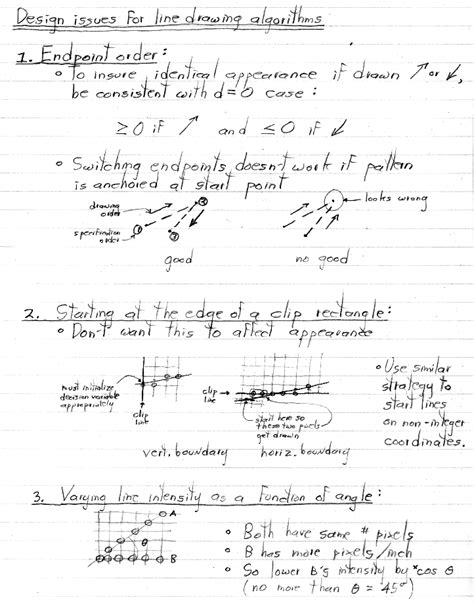 Design issues for line drawing algorithms
1. Endpoint order:
• To insure identical appearance if drawn ↗ or ↙,
be consistent with d=0 case:
≥0 if ↗ and ≤0 if ↙
• Switching endpoints doesn't work if pattern
is anchored at start point
drawing
order
specification
order
① ② ②
looks wrong
good no good
2. Starting at the edge of a clip rectangle:
• Don't want this to affect appearance
must initialize
decision variable
appropriately
clip
line
vert. boundary
clip
line
start here so
these two pixels
get drawn
horiz. boundary
• Use similar
strategy to
start lines
on non-integer
coordinates.
3. Varying line intensity as a function of angle:
A
θ
B
• Both have same # pixels
• B has more pixels/inch
• So lower B's intensity by *cos θ
(no more than θ = 45°)